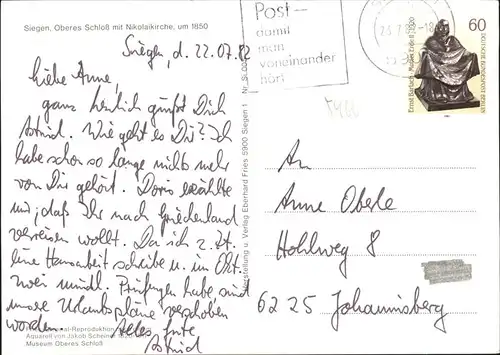 Siegen, Oberes Schloß mit Nikolaikirche, um 1850
Siegen, d. 22.07.82
Liebe Anne,
ganz herzlich grüßt Dich
Astrid. Wie geht es Dir? Ich
habe schon so lange nichts mehr
von Dir gehört. Doris erzählte
mir, daß Ihr nach Griechenland
verreisen wollt. Da ich z. Zt.
eine Hausarbeit schreibe u. im Okt.
zwei mündl. Prüfungen habe, sind
unsere Urlaubspläne verschoben
worden. Alles Gute
Astrid
Aquarell von Jakob Scheiner
Museum Oberes Schloß
Herstellung u. Verlag Eberhard Fries 5900 Siegen 1
Post-
damit
man
voneinander
hört
60
DEUTSCHE BUNDESPOST BERLIN
Ernst Barlach
An
Anne Oberle
Hohlweg 8
6225 Johannisberg